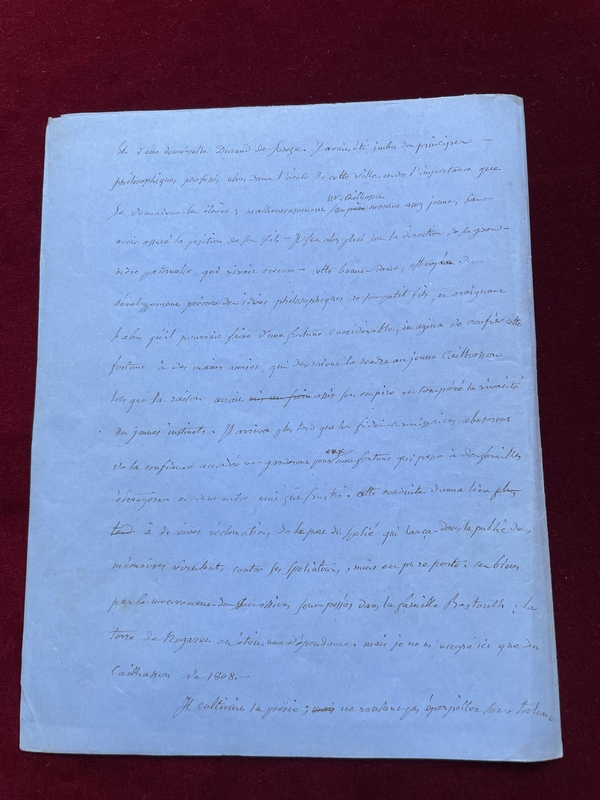 Et d'une demoiselle Durand de Sorèze. Il avait été imbu des principes
philosophiques professés, alors, dans l'école de cette ville
Le donnaient la célèbre; malheureusement mourut assez jeune, sans
Mr. Cailhasson
avoir assuré la position de son fils — Il fut alors placé sous la direction de sa grand-
mère paternelle, qui vivait encore — cette bonne dame, effrayée du
développement précoce des idées philosophiques de son petit fils, et craignant
l'abus qu'il pourrait faire d'une fortune considérable, imagina de confier cette
fortune à des mains amies, qui devraient la rendre au jeune Cailhasson
lors que la raison aurait mis un frein assis son empire et tempéré la vivacité
des jeunes instincts. Il arriva plus tard que les fidéicommissaires abusèrent
de la confiance accordée et gardèrent pour eux une fortune qui passa à des familles
étrangères
à de vives réclamations de la part du spolié qui lança dans le public des
mémoires virulents, contre ses spoliateurs, mais en pure perte: ces biens
par le mouvement des successions sont passés dans la famille Bastoulh; la
terre de Nogaret en était une dépendance. mais je ne m'occupe ici que du
Cailhasson de 1808.—
Il cultivait la poésie; mais ne voulant pas éparpiller ses